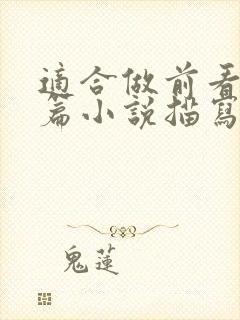 適合做前看
篇小說描寫
鬼蓮